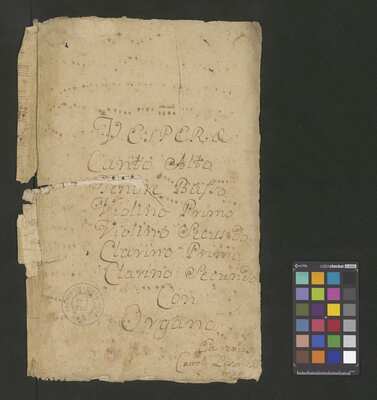 VESPERAE
Canto Alto
Tenore Basso
Violino Primo
Violino Secundo
Clarino Primo
Clarino Secundo
Con
Organo